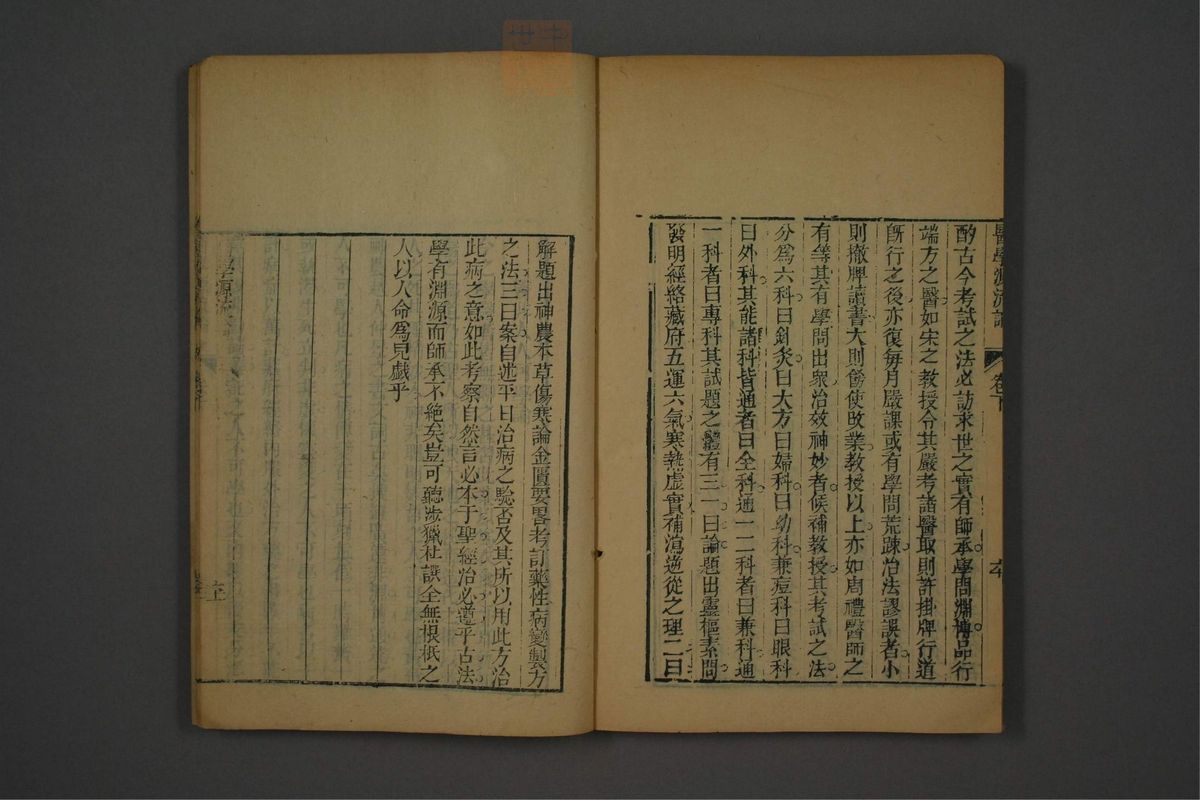 醫學源流論 卷下
酌古今考試之法必訪求世之實有師承學問淵博品行
端方之醫如宋之教授令其嚴考諸醫取則許掛牌行道
旣行之後亦復每月嚴課或有學問荒踈治法謬誤者小
則撤牌讀書大則飭使改業教授以上亦如周禮醫師之
有等其有學問出衆治效神妙者候補教授其考試之法
分爲六科曰針灸曰大方曰婦科曰幼科兼痘科曰眼科
曰外科其能諸科皆通者曰全科通一二科者曰兼科通
一科者曰專科其試題之體有三一曰論題出靈樞素問
發明經絡藏府五運六氣寒熱虛實補瀉逆從之理二曰
解題出神農本草傷寒論金匱要畧考訂藥性病變製方
之法三曰案自述平日治病之驗否及其所以用此方治
此病之意如此考察自然言必本于聖經治必遵乎古法
學有淵源而師承不絕矣豈可聽涉獵杜譔全無根柢之
人以人命爲兒戲乎